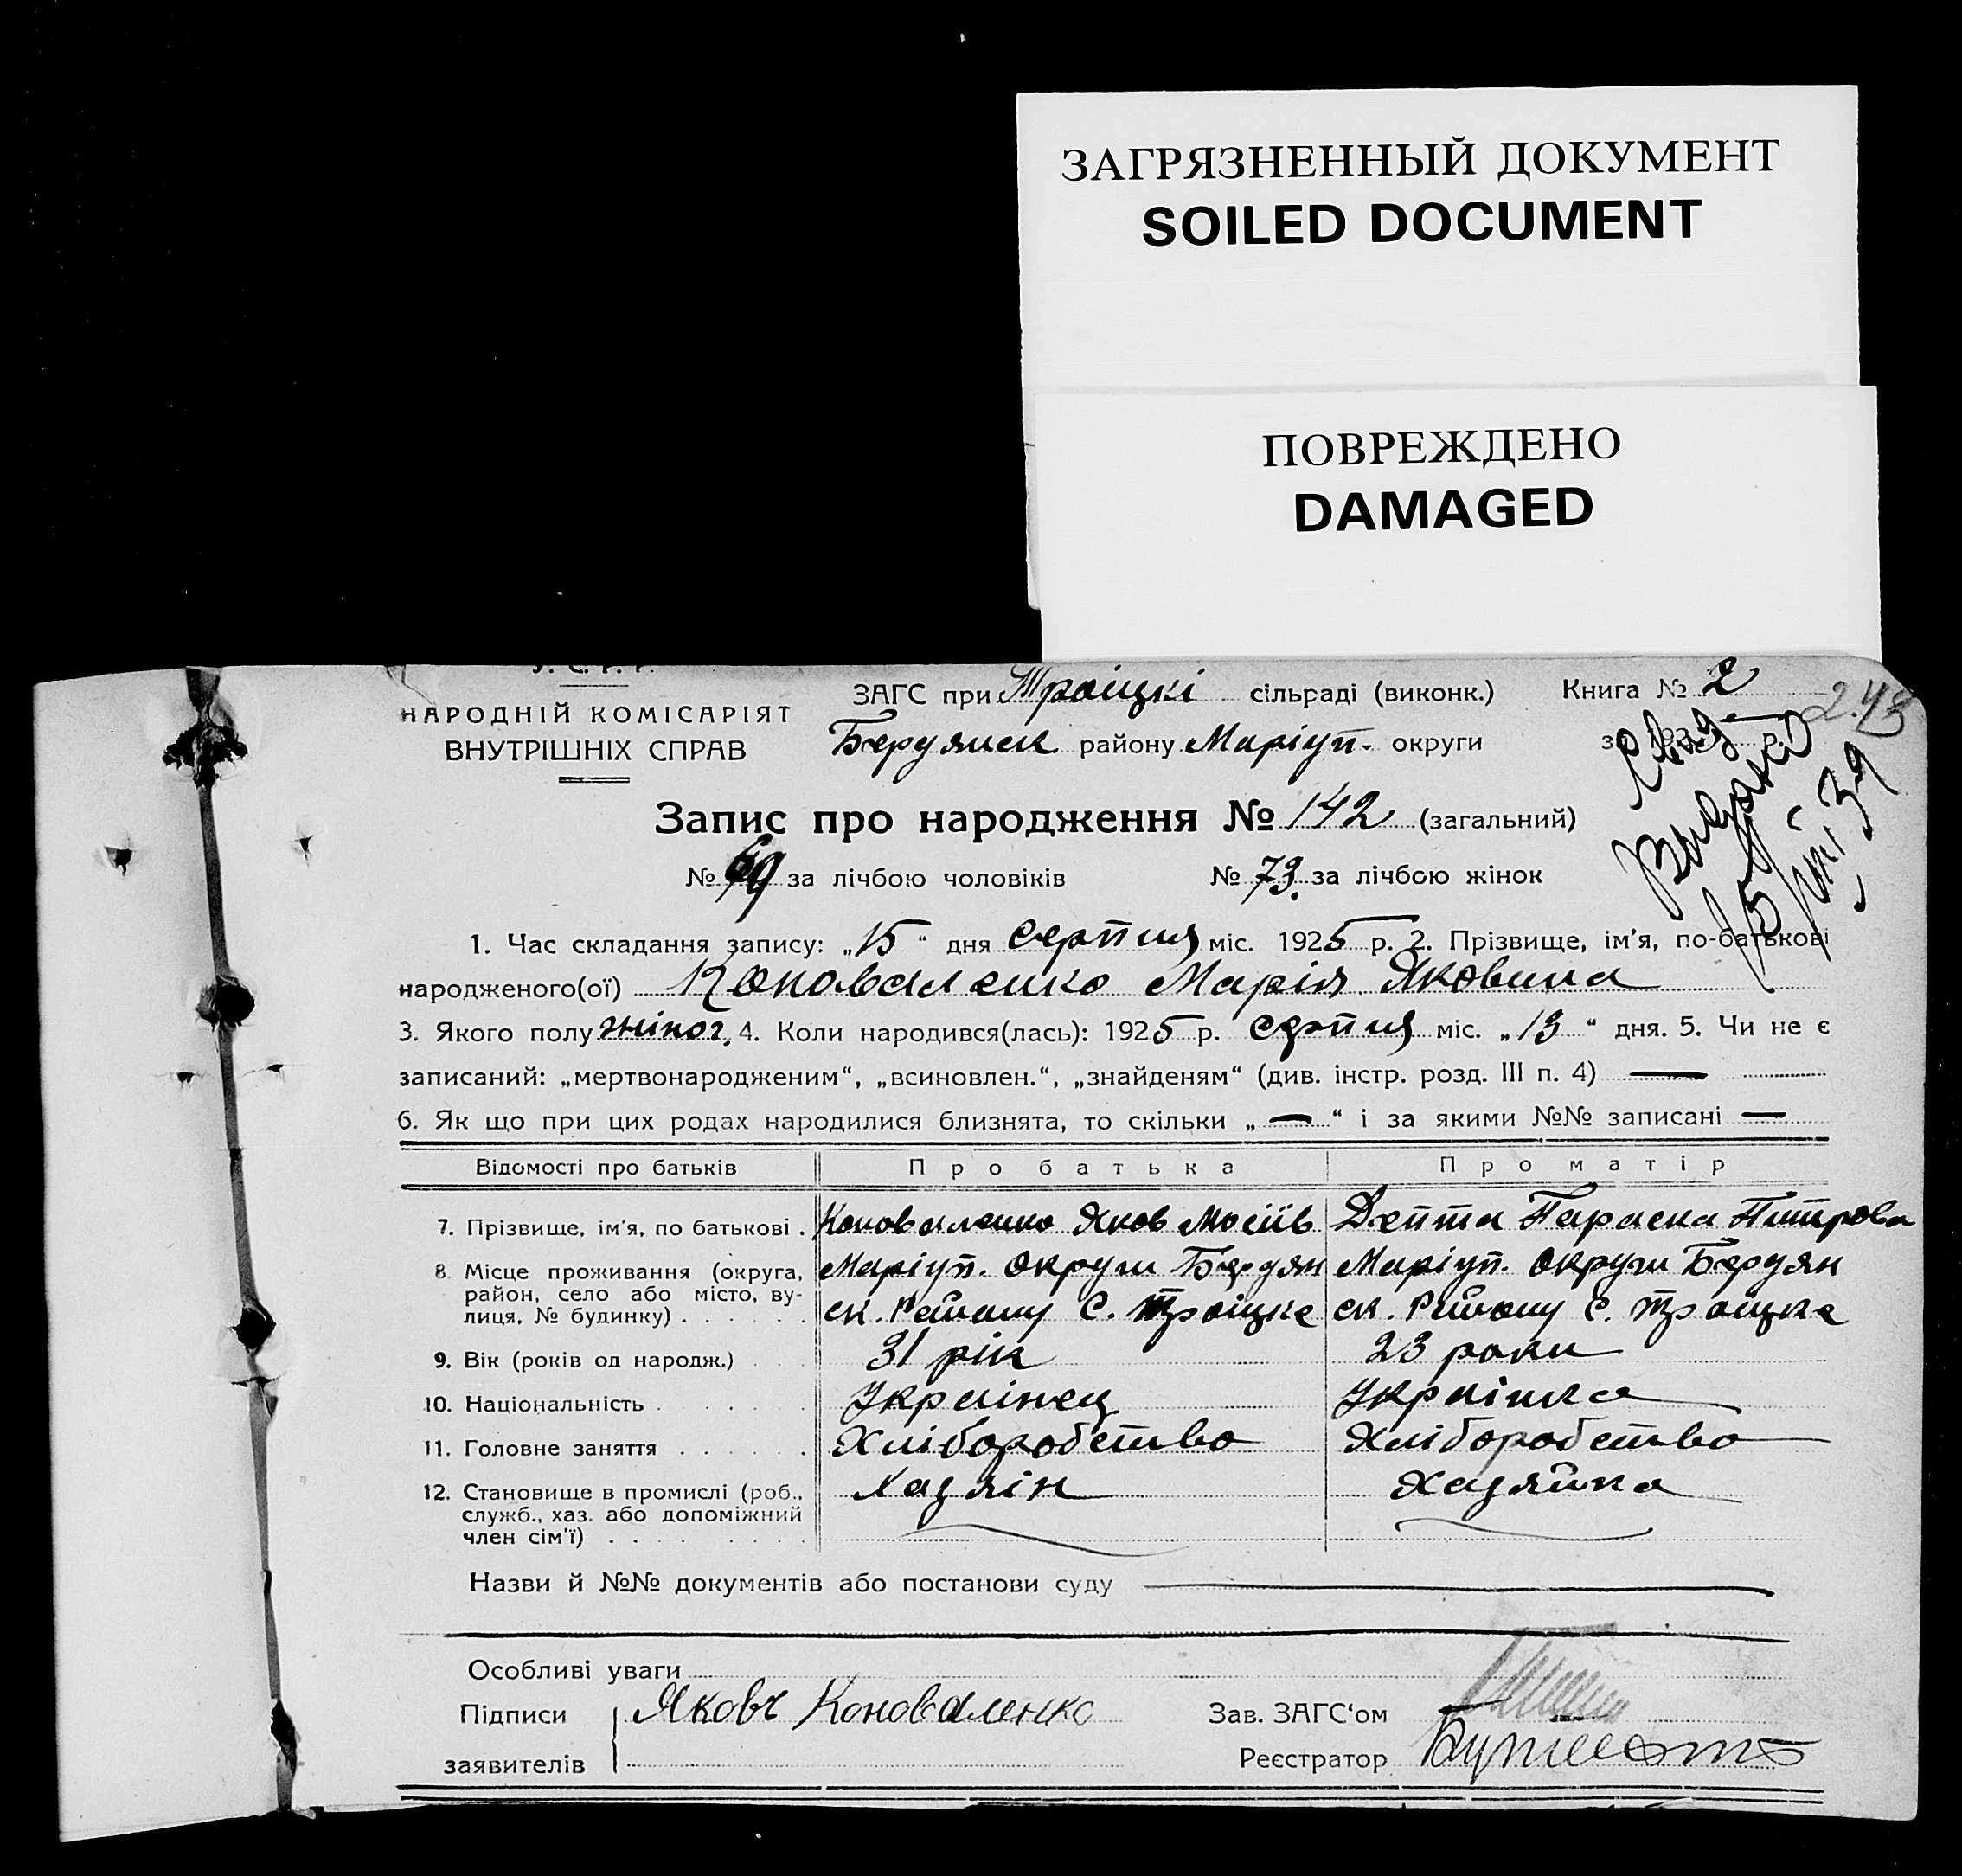 ЗАГРЯЗНЕННЫЙ ДОКУМЕНТ
SOILED DOCUMENT
ПОВРЕЖДЕНО
DAMAGED
НАРОДНІЙ КОМІСАРІЯТ
ВНУТРІШНІХ СПРАВ
ЗАГС при Троіцкі сільраді (виконк.) Книга № 2
Бердянск району Маріуп. округи
Запис про народження № 142 (загальний)
№ 69 за лічбою чоловіків № 73. за лічбою жінок
1. Час складання запису: „15“ дня серпня міс. 1925 р. 2. Прізвище, ім'я, по-батькові
народженого(ої) Коноваленко Марія Яковина
3. Якого полу жіноч. 4. Коли народився(лась): 1925 р. серпня міс. „13“ дня. 5. Чи не є
записаний: „мертвонародженим“, „всиновлен.“, „знайденям“ (див. інстр. розд. III п. 4) —
6. Як що при цих родах народилися близнята, то скільки „—“ і за якими №№ записані —
Відомості про батьків Про батька Про матір
7. Прізвище, ім'я, по батькові . Коноваленко Яков Мосіів Депта Параска Питрова
8. Місце проживання (округа, район, село або місто, вулиця, № будинку) . . . . . . Маріуп. округи Бердян ск. Району С. Троіцке Маріуп. округи Бердян ск. Району С. Троіцке
9. Вік (років од народж.) 31 рік 23 роки
10. Національність . . . . . . Украінец Украінка
11. Головне заняття . . . . . . Хліборобство Хліборобство
12. Становище в промислі (роб., служб., хаз. або допоміжний член сім'ї) . . . . . . . . Хазяін Хазяйка
Назви й №№ документів або постанови суду
Особливі уваги
Підписи Яковъ Коноваленко Зав. ЗАГС‘ом
заявителів Реєстратор